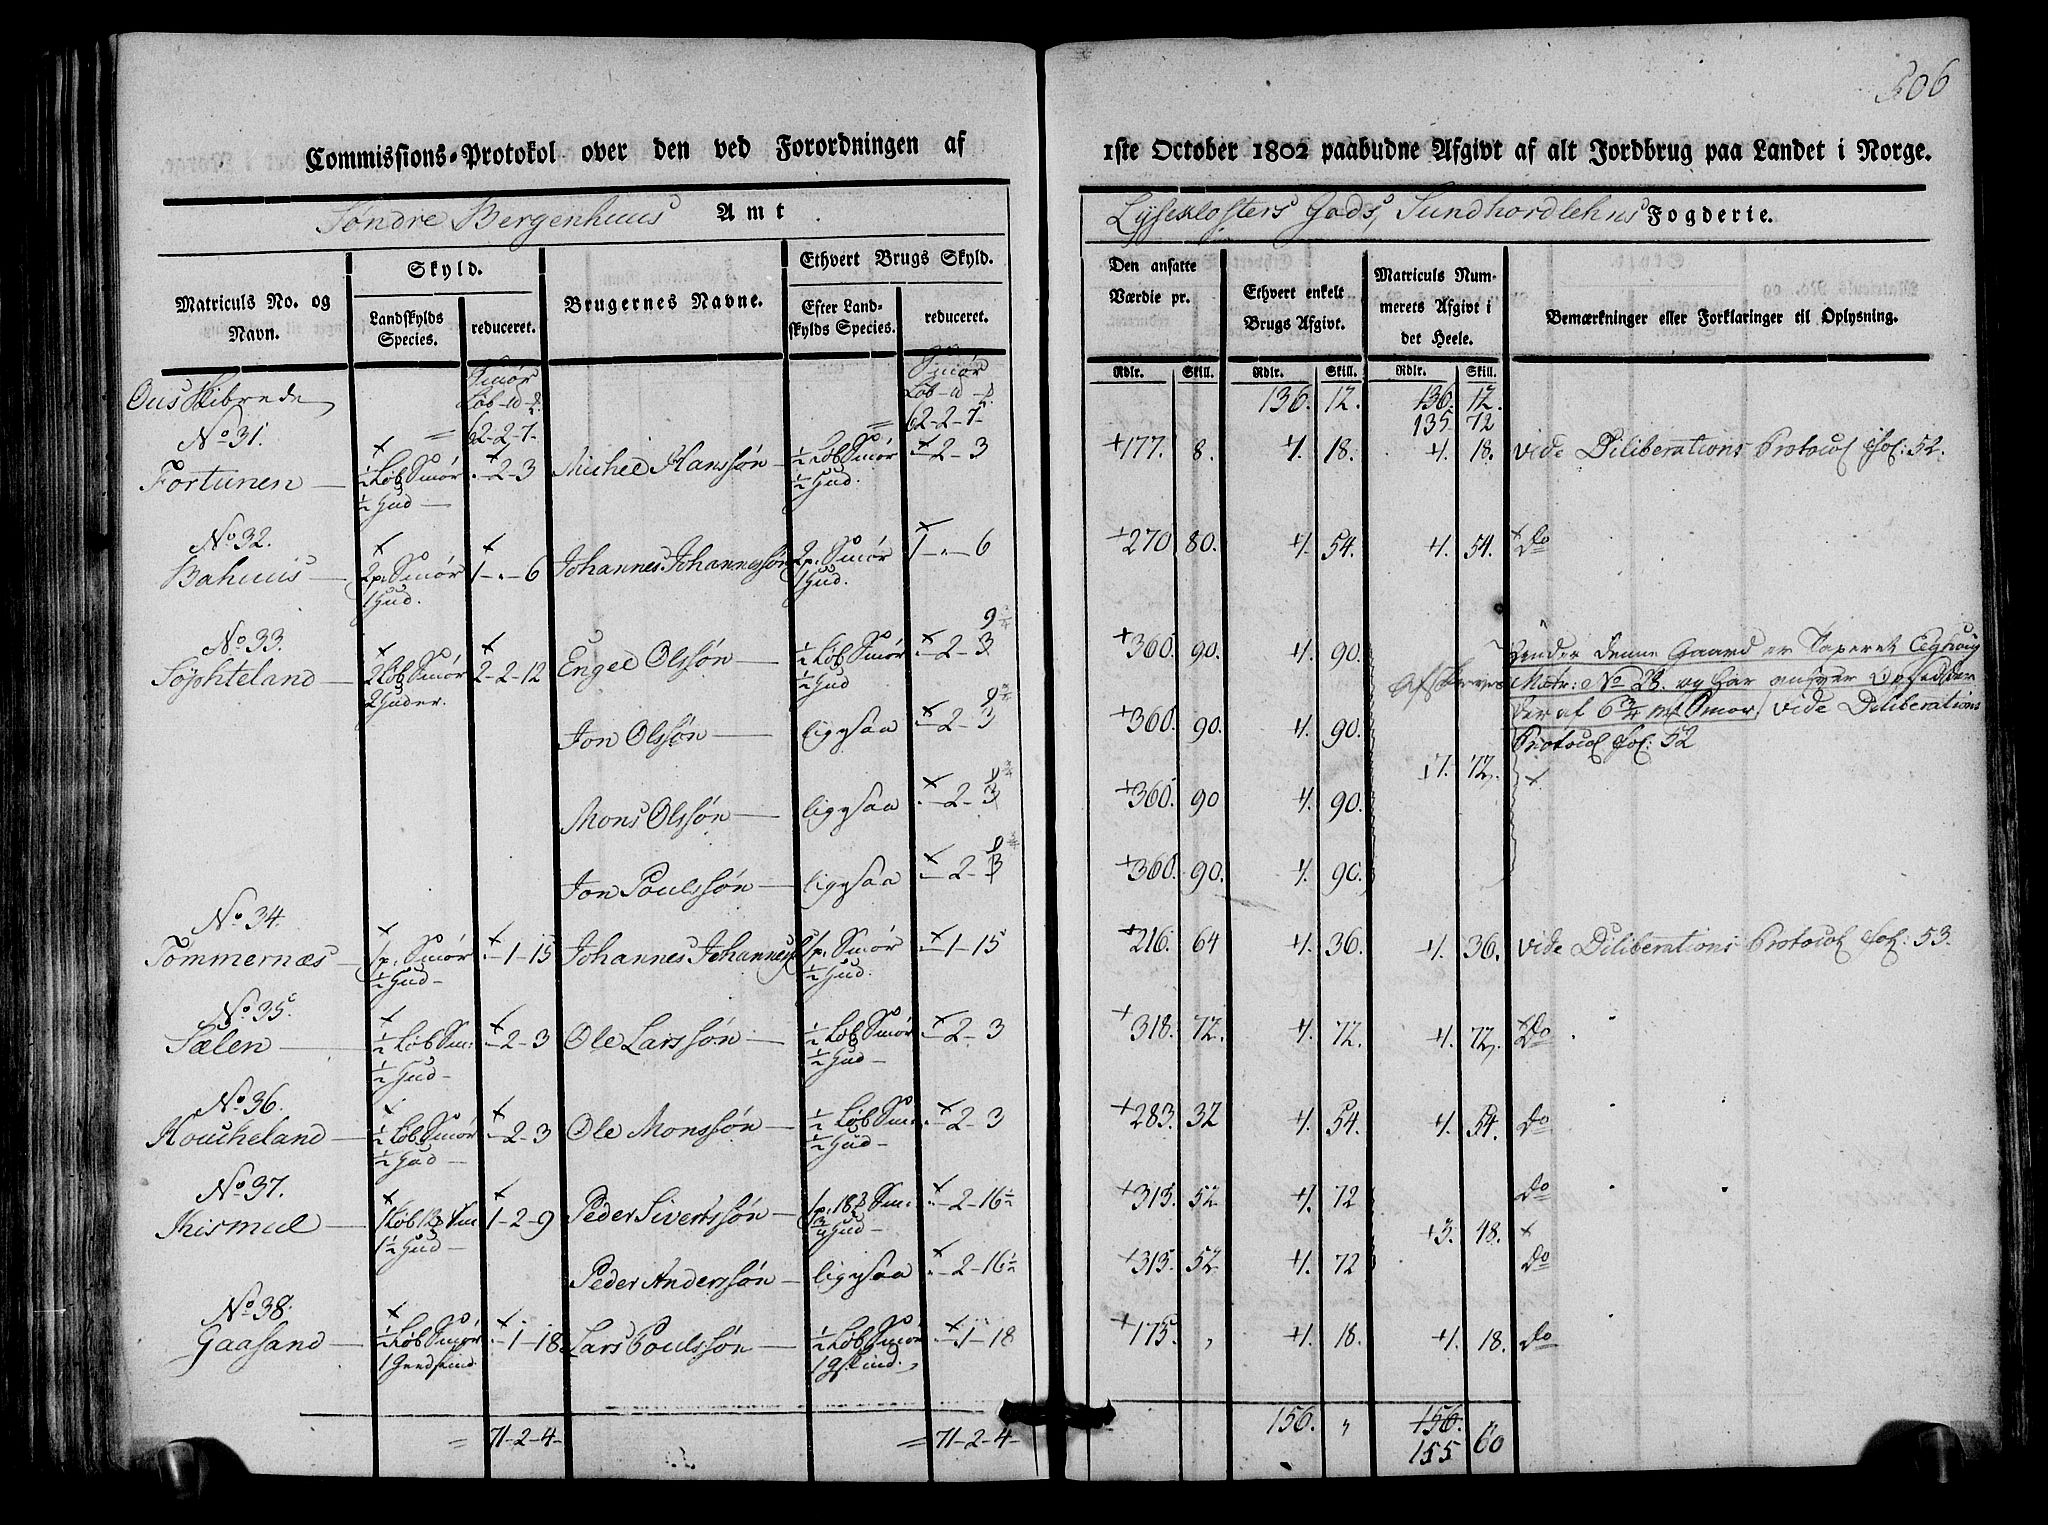 506
Commissions-Protokol over den ved Forordningen af 1ste October 1802 paabudne Afgivt af alt Jordbrug paa Landet i Norge.
Søndre Bergenhuus Amt. Lyseklosters Gods, Sundhordlehns Fogderie.
Matriculs No. og Navn.
Skyld.
Landskylds Species.
reduceret.
Brugernes Navne.
Ethvert Brugs Skyld.
Efter Landskylds Species.
reduceret.
Den ansatte Værdie pr.
Ethvert enkelt Brugs Afgivt.
Matriculs Nummerets Afgivt i det Heele.
Bemærkninger eller Forklaringer til Oplysning.
Rdlr. Skill. Rdlr. Skill. Rdlr. Skill.
Ous Skibrede Smør Løb - Smør Løb - 136. 12. 136. 12.
= 62-2-7- = 62-2-7- 135 72
No 31.
Fortunen — ½ Løb Smør ½ Hud — -2-3 Michel Hanssøn — ½ Løb Smør ½ Hud. -2-3 +177. 8. +1. 18. +1. 18. vide Diliberations Protocol Fol: 52.
No 32.
Bahuus — 2p. Smør 1 Hud. 1-.-6 Johannes Johannessøn 2p. Smør 1 Hud. 1-.-6 +270 80. +1. 54. +1. 54. Do
No 33.
Søphteland — 2 Løb Smør 2 Huder. 2-2-12 Engel Olssøn — ½ Løb Smør ½ Hud -2-3 +360. 90. +1. 90.
Under denne Gaard er Taxeret
Matr: No 28. og har
der af 6¾ Smør, vide Diliberations
Protocol Fol: 52
Jon Olssøn — ligesaa -2-3 +360. 90. +1. 90.
+7. 72.
Mons Olssøn — ligesaa -2-3 +360. 90 +1. 90.
Jon Poulssøn — ligesaa -2-3 +360. 90. +1. 90.
No 34.
Tømmernæs — 1p. Smør ½ Hud — -1-15 Johannes Johannes 1p. Smør ½ Hud. -1-15 +216. 64 +1. 36. +1. 36. vide Diliberations Protocol Fol: 53.
No 35.
Sælen — ½ Løb Sm: ½ Hud — -2-3 Ole Larssøn — ½ Løb Smør ½ Hud — -2-3 +318. 72. +1. 72. +1. 72. Do
No 36.
Houcheland — ½ Løb Smør ½ Hud — -2-3 Ole Monssøn — ½ Løb Sm: ½ Hud — -2-3 +283. 32 +1. 54. +1. 54. Do
No 37.
Kismul — 1½ Hud — 1-2-9 Peder Sivertssøn — ¾ Hud — -2-16½ +315. 52 +1. 72 Do
+3. 48.
Peder Anderssøn — ligesaa -2-16½ +315. 52 +1. 72 Do
No 38.
Gaasand — ½ Løb Smør 1 Geedskind. -1-18 Lars Poulssøn — ½ Løb Smør 1 Gskind. -1-18 +175. „ +1. 18. +1. 18. Do
= 71-2-4- = 71-2-4- 156. „ 156. „
155 60